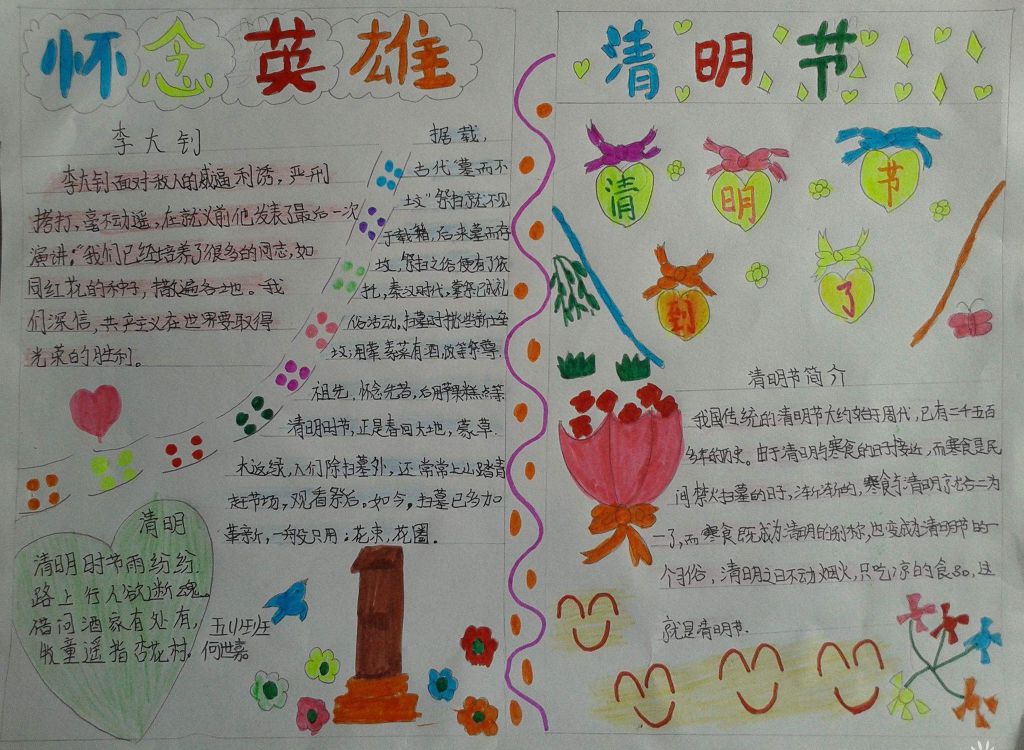 怀念英雄
李大钊
李大钊面对敌人的威逼利诱，严刑
拷打，毫不动遥，在就义前他发表了最后一次
演讲："我们已经培养了很多的同志，如
同红花的种子，撒遍各地。我
们深信，共产主义在世界要取得
光荣的胜利。
据载，
古代"墓而不
坟"祭扫就不见
于载籍，后来墓而存
坟，祭扫之俗便有了依
托，秦汉时代，墓祭已成礼
俗活动，扫墓时
坟，用荤素菜有酒
祖先，怀念先
清明时节，正是春回大地，
木返绿，人们除扫墓外，还常常上山踏青
赶节场，观看祭后。如今，扫墓已多加
革新，一般只用：花束，花圈。
清明
清明时节雨纷纷
路上行人欲断魂
借问酒家有处有，
牧童遥指杏花村。
何世嘉
清明节
清明节
到了
清明节简介
我国传统的清明节大约始于周代，已有二千五百
多年的历史。由于清明与寒食的日子接近，而寒食是民
间禁火扫墓的日子，渐渐的，寒食与清明就合二为
一了，而寒食既成为清明的别称，也变成为清明节的一
个习俗，清明之日不动烟火，只吃凉的食品，这
就是清明节.